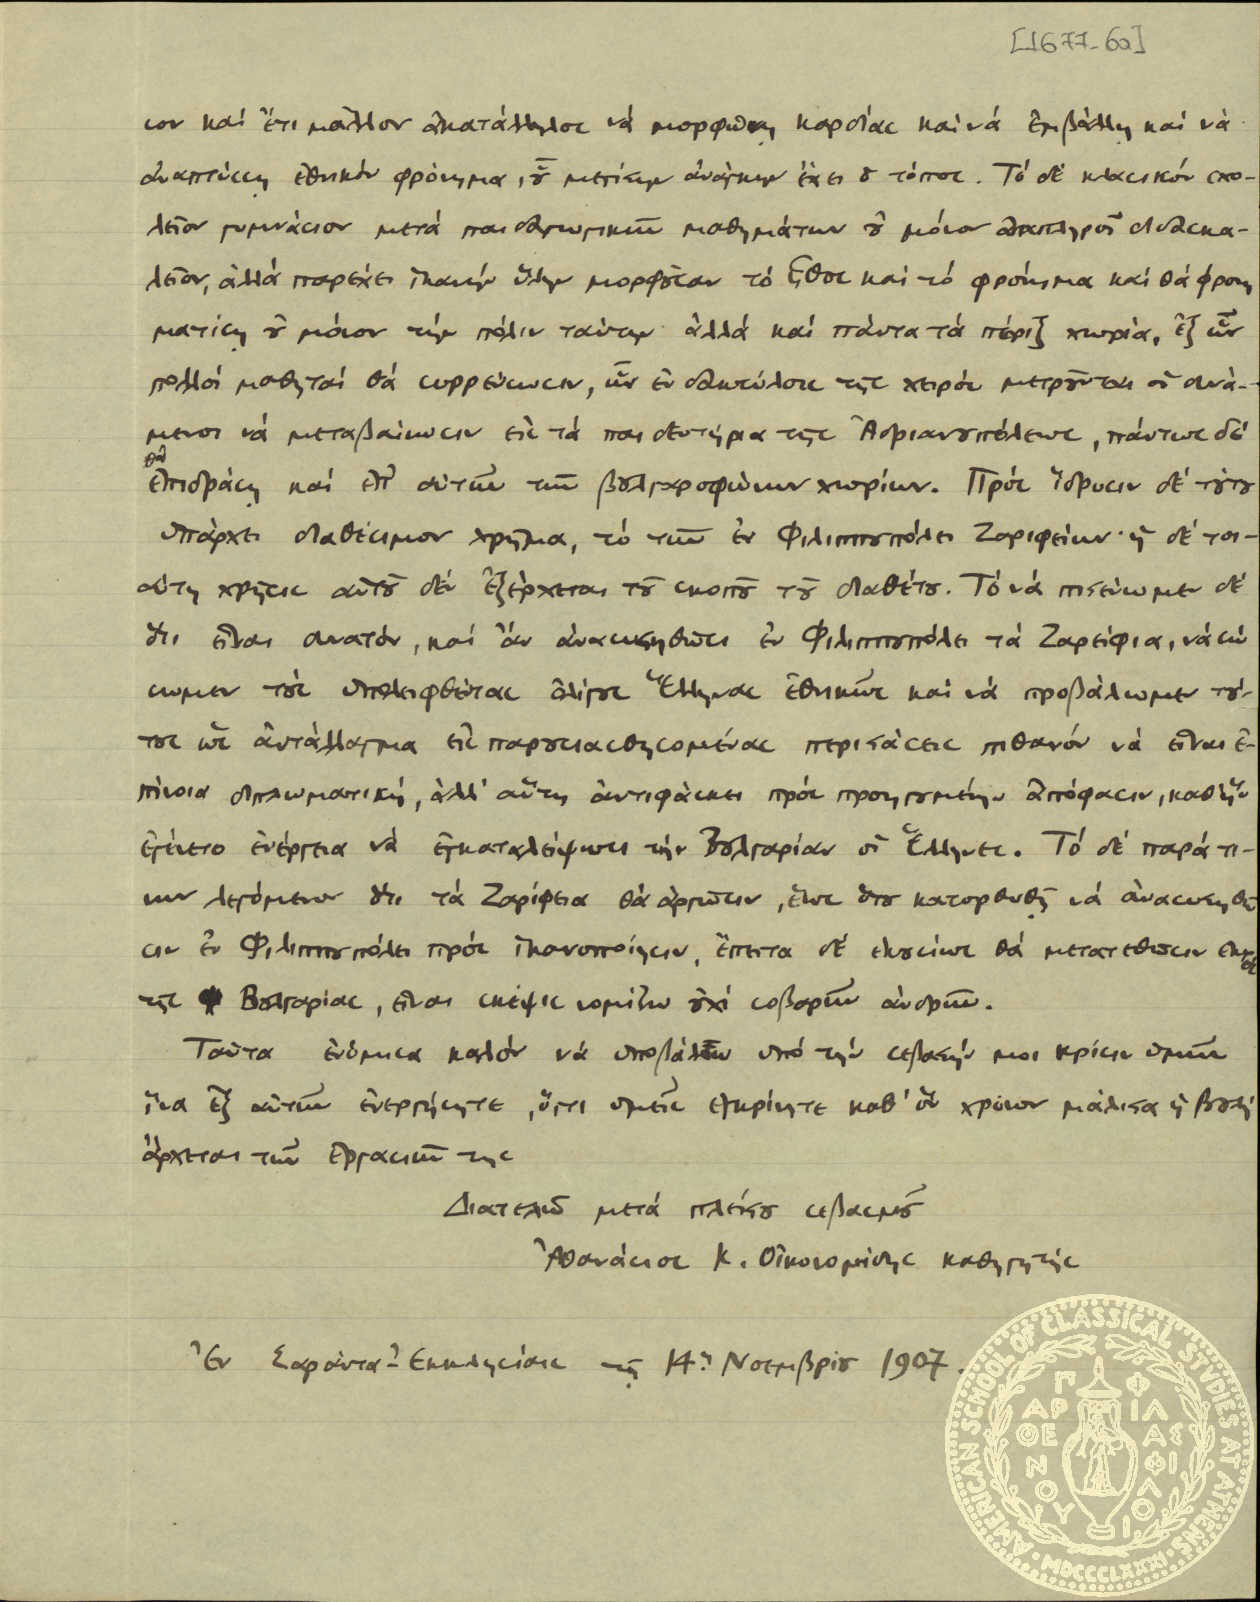 [1677-6α]
ιον καί ἔτι μᾶλλον ἀκατάλληλος νά μορφώσῃ καρδίας καί νά ἐμβάλλῃ καί νὰ
ἀναπτύσσῃ ἐθνικόν φρόνημα, οὗ μεγίστην ἀνάγκην ἔχει ὁ τόπος. Τό δέ κλασικόν σχο-
λεῖον γυμνάσιον μετά παιδαγωγικῶν μαθημάτων οὐ μόνον ἀναπληροῖ διδασκα-
λεῖον, ἀλλά παρέχει ἱκανήν ὕλην μορφοῦσαν τό ἦθος καί τό φρόνημα καί θά φρονη
ματίσῃ οὐ μόνον τήν πόλιν ταύτην ἀλλά καί πάντα τά πέριξ χωρία, ἐξ ὧν
πολλοί μαθηταί θά συρρεύσωσιν, ὧν ἐν δακτύλοις τῆς χειρός μετροῦνται οἱ δυνά-
μενοι νά μεταβαίνωσιν εἰς τά παιδευτήρια τῆς Ἀδριανουπόλεως, πάντως δέ
θά
ἐπιδράσῃ καί ἐπ' αὐτῶν τῶν βουλγαροφώνων χωρίων. Πρός ἵδρυσιν δέ τούτου
ὑπάρχει διαθέσιμον χρῆμα, τό τῶν ἐν Φιλιππουπόλει Ζαριφείων· ἡ δέ τοι-
αύτη χρῆσις αὐτοῦ δέν ἐξέρχεται τοῦ σκοποῦ τοῦ διαθέτου. Τό νά πιστεύωμεν δέ
ὅτι εἶναι δυνατόν, καί ἄν ἀνασυστηθῶσι ἐν Φιλιππουπόλει τά Ζαρείφια, νά σώ
σωμεν τούς ὑπολειφθέντας ὀλίγους Ἕλληνας ἐθνικῶς καί νά προβάλωμεν τού-
τους ὡς ἀντάλλαγμα εἰς παρουσιασθησομένας περιστάσεις πιθανόν νά εἶναι ἐ-
πίνοια διπλωματική, ἀλλ' αὕτη ἀντιφάσκει πρός προηγουμένην ἀπόφασιν, καθ' ἥν
ἐγένετο ἐνέργεια νά ἐγκαταλείψωσι τήν Βουλγαρίαν οἱ Ἕλληνες. Τό δέ παρά τι-
νων λεγόμενον ὅτι τά Ζαρίφεια θά ἀργῶσιν, ἕως ὅτου κατορθωθῇ νά ἀνασυστηθῶ
σιν ἐν Φιλιππουπόλει πρός ἱκανοποίησιν, ἔπειτα δέ ἑκουσίως θά μετατεθῶσιν ἐκτός
τῆς Βουλγαρίας, εἶναι σκέψις νομίζω οὐχί σοβαρῶν ἀνδρῶν.
Ταῦτα ἐνόμισα καλόν νά ὑποβάλω ὑπό τήν σεβαστήν μοι κρίσιν ὑμῶν
ἵνα ἐξ αὐτῶν ἐνεργήσητε, ὅ,τι ὑμεῖς ἐγκρίνητε καθ' ὅν χρόνον μάλιστα ἡ βουλή
ἄρχεται τῶν ἐργασιῶν της
Διατελῶ μετά πλείστου σεβασμοῦ
Ἀθανάσιος Κ. Οἰκονομίδης καθηγητής
Ἐν Σαράντα-Ἐκκλησίαις τῇ 14ῃ Νοεμβρίου 1907.
AMERICAN SCHOOL OF CLASSICAL STUDIES AT ATHENS
MDCCCLXXXI
ΠΑΡΘΕΝΟΥ
ΦΙΛΑΣ ΦΙΛΟΙ